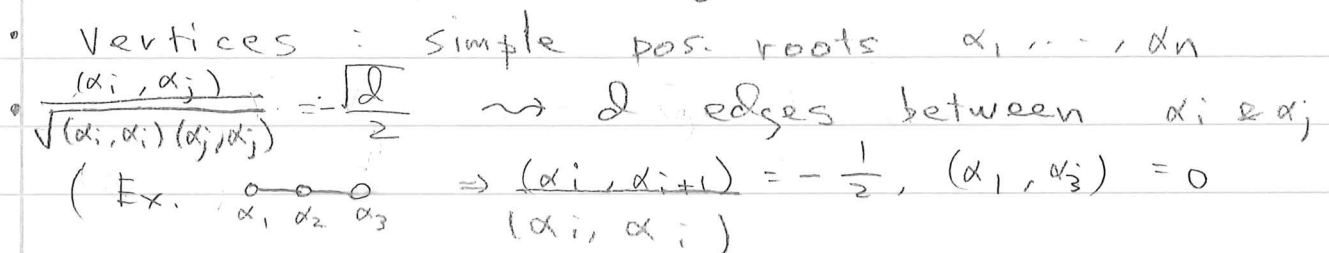 • Vertices : simple pos. roots α₁, ..., αn
• (αi, αj) / √((αi, αi)(αj, αj)) = -√d/2 ⇝ d edges between αi & αj
( Ex. o-o-o α₁ α₂ α₃ ⇒ (αi, αi+1) / (αi, αi) = -1/2, (α₁, α₃) = 0